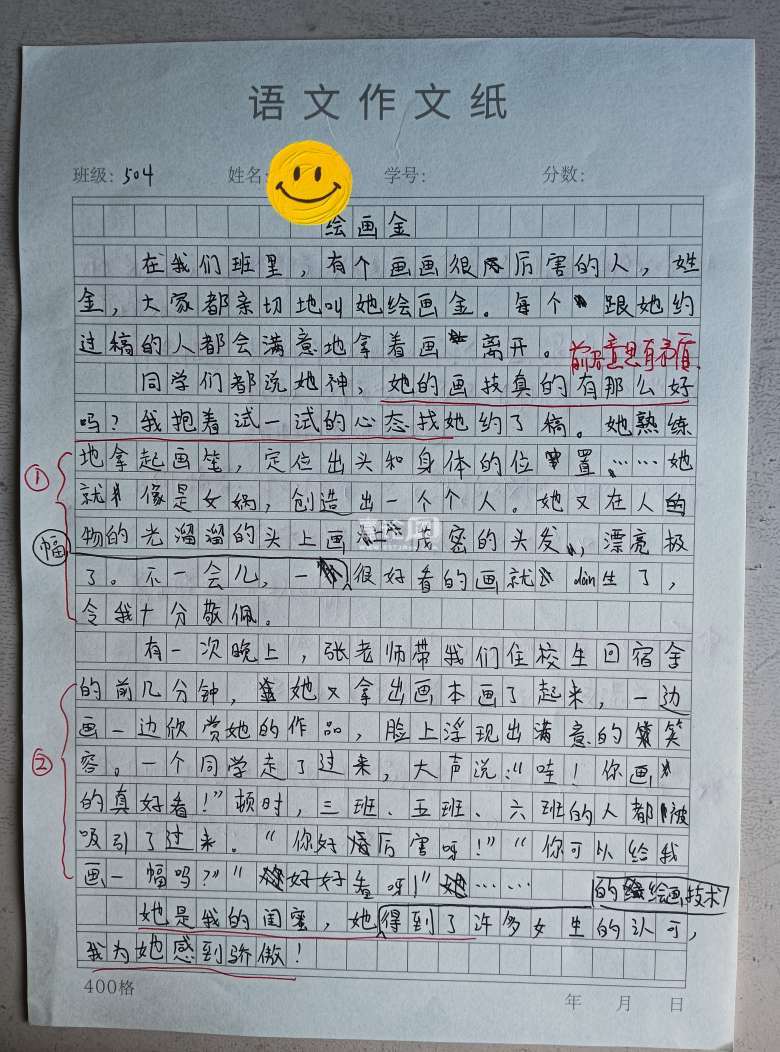 语文作文纸
班级：504 姓名： 学号： 分数：
绘画金
在我们班里，有个画画很厉害的人，姓
金，大家都亲切地叫她绘画金。每个跟她约
过稿的人都会满意地拿着画离开。
前后意思有矛盾
同学们都说她神，她的画技真的有那么好
吗？我抱着试一试的心态找她约了稿。她熟练
① 地拿起画笔，定位出头和身体的位置……她
就像是女娲，创造出一个个人。她又在人
物的光溜溜的头上画上茂密的头发，漂亮极
幅
了。不一会儿，一很好看的画就dàn生了，
令我十分敬佩。
有一次晚上，张老师带我们住校生回宿舍
的前几分钟，她又拿出画本画了起来，一边
画一边欣赏她的作品，脸上浮现出满意的笑
② 容。一个同学走了过来，大声说：“哇！你画
的真好看！”顿时，三班、五班、六班的人都被
吸引了过来。“你好厉害呀！”“你可以给我
画一幅吗？”“好好看呀！”……
的绘画技术
她是我的闺蜜，她得到了许多女生的认可，
我为她感到骄傲！
400格 年 月 日